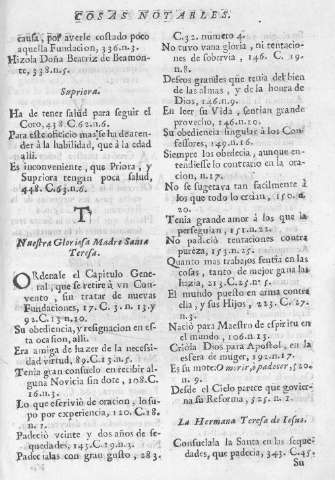 COSAS NOTABLES.
causa, por averle costado poco
aquella Fundacion, 336.n.3.
Hizola Doña Beatriz de Beamon-
te, 338.n.5.
Supriora.
Ha de tener salud para seguir el
Coro, 438 C.62.n.6.
Para este oficio mas se ha de aten-
der à la habilidad, que à la edad
alli.
Es inconveniente, que Priora, y
Supriora tengan poca salud,
448. C.63.n.6.
T
Nuestra Gloriosa Madre Santa
Teresa.
Ordenale el Capitulo Gene-
ral, que se retire à vn Con-
vento, sin tratar de nuevas
Fundaciones, 17. C.3. n.13. y
92. C.13. n.10.
Su obediencia, y resignacion en es-
ta ocasion, alli.
Era amiga de hazer de la necessi-
dad virtud, 89. C.13. n.5.
Tenia gran consuelo en recibir al-
guna Novicia sin dote, 108. C.
16. n.3.
Lo que escrivió de oracion, lo su-
po por experiencia, 120. C.18.
n.1.
Padeciò veinte y dos años de se-
quedades, 143. C.19. n.3.
Padecialas con gran gusto, 283.
C.32. numero 4.
No tuvo vana gloria, ni tentacio-
nes de sobervia, 146. C. 19.
n.8.
Deseos grandes que tenia del bien
de las almas, y de la honra de
Dios, 146. n.9.
En leer su Vida, sentian grande
provecho, 146. n.10.
Su obediencia singular à los Con-
fessores, 149. n.16.
Siempre los obedecia, aunque en-
tendiesse lo contrario en la ora-
cion, n.17.
No se sugetava tan facilmente à
los que todo lo creian, 150. n.
20.
Tenia grande amor à los que la
perseguian, 151. n.22.
No padeciò tentaciones contra
pureza, 153. n.25.
Quanto mas trabajos sentia en las
cosas, tanto de mejor gana las
hazia, 213. C.25. n.5.
El mundo puesto en arma contra
ella, y sus Hijos, 223. C. 27.
n.3.
Naciò para Maestro de espiritu en
el mundo, 106. n.23.
Criòla Dios para Apostol, en la
esfera de muger, 192. n.17.
Es su mote: O morir, ò padecer, 320.
n.9.
Desde el Cielo parece que govier-
na su Reforma, 525. n.2.
La Hermana Teresa de Iesus.
Consuelala la Santa en las seque-
dades, que padecia, 343. C.45.
Su